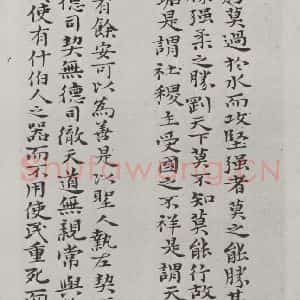 莫過於水而攻堅强者莫之能勝其
强柔之勝剛天下莫不知莫能行故
垢是謂社稷主受國之不祥是謂天
有餘安可以為善是以聖人執左契
德司契無德司徹天道無親常與
使有什伯人之器而不用使民重死而
Shufawang.CN